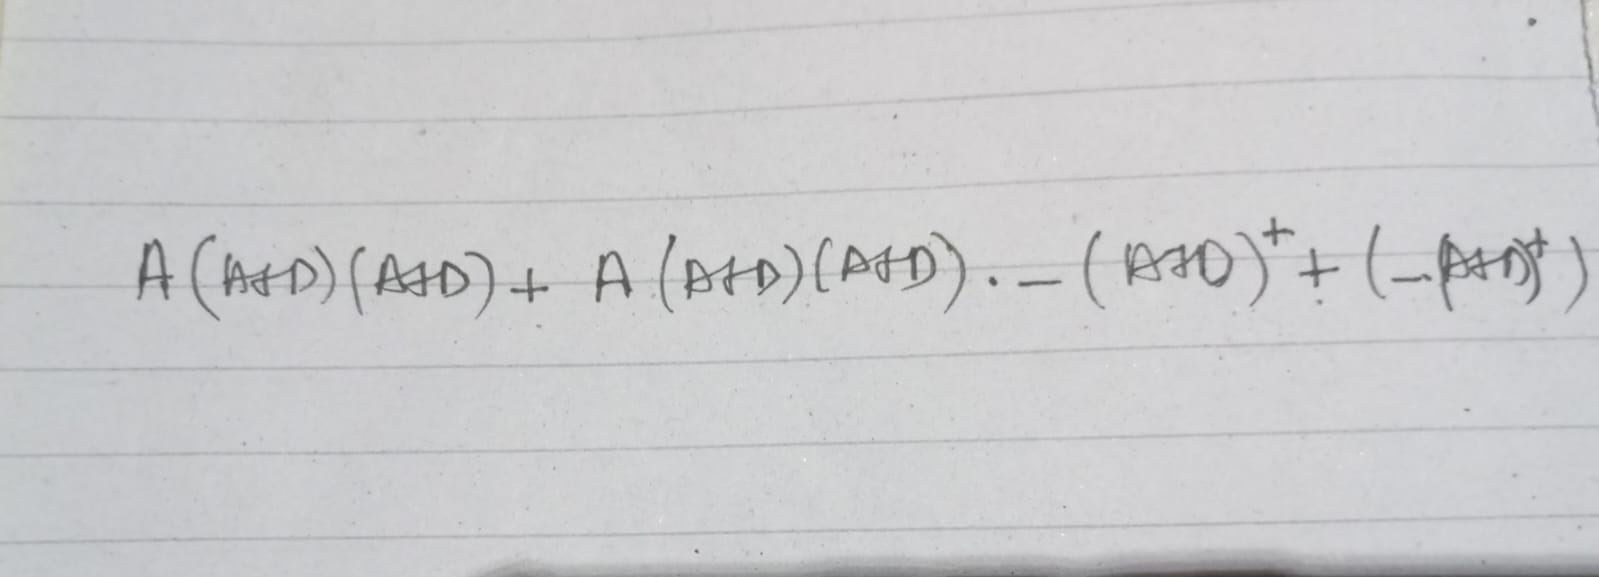 A(A+D)(A+D)+ A(A+D)(A+D).-(A+D)⁺+(-(A+D)⁺)